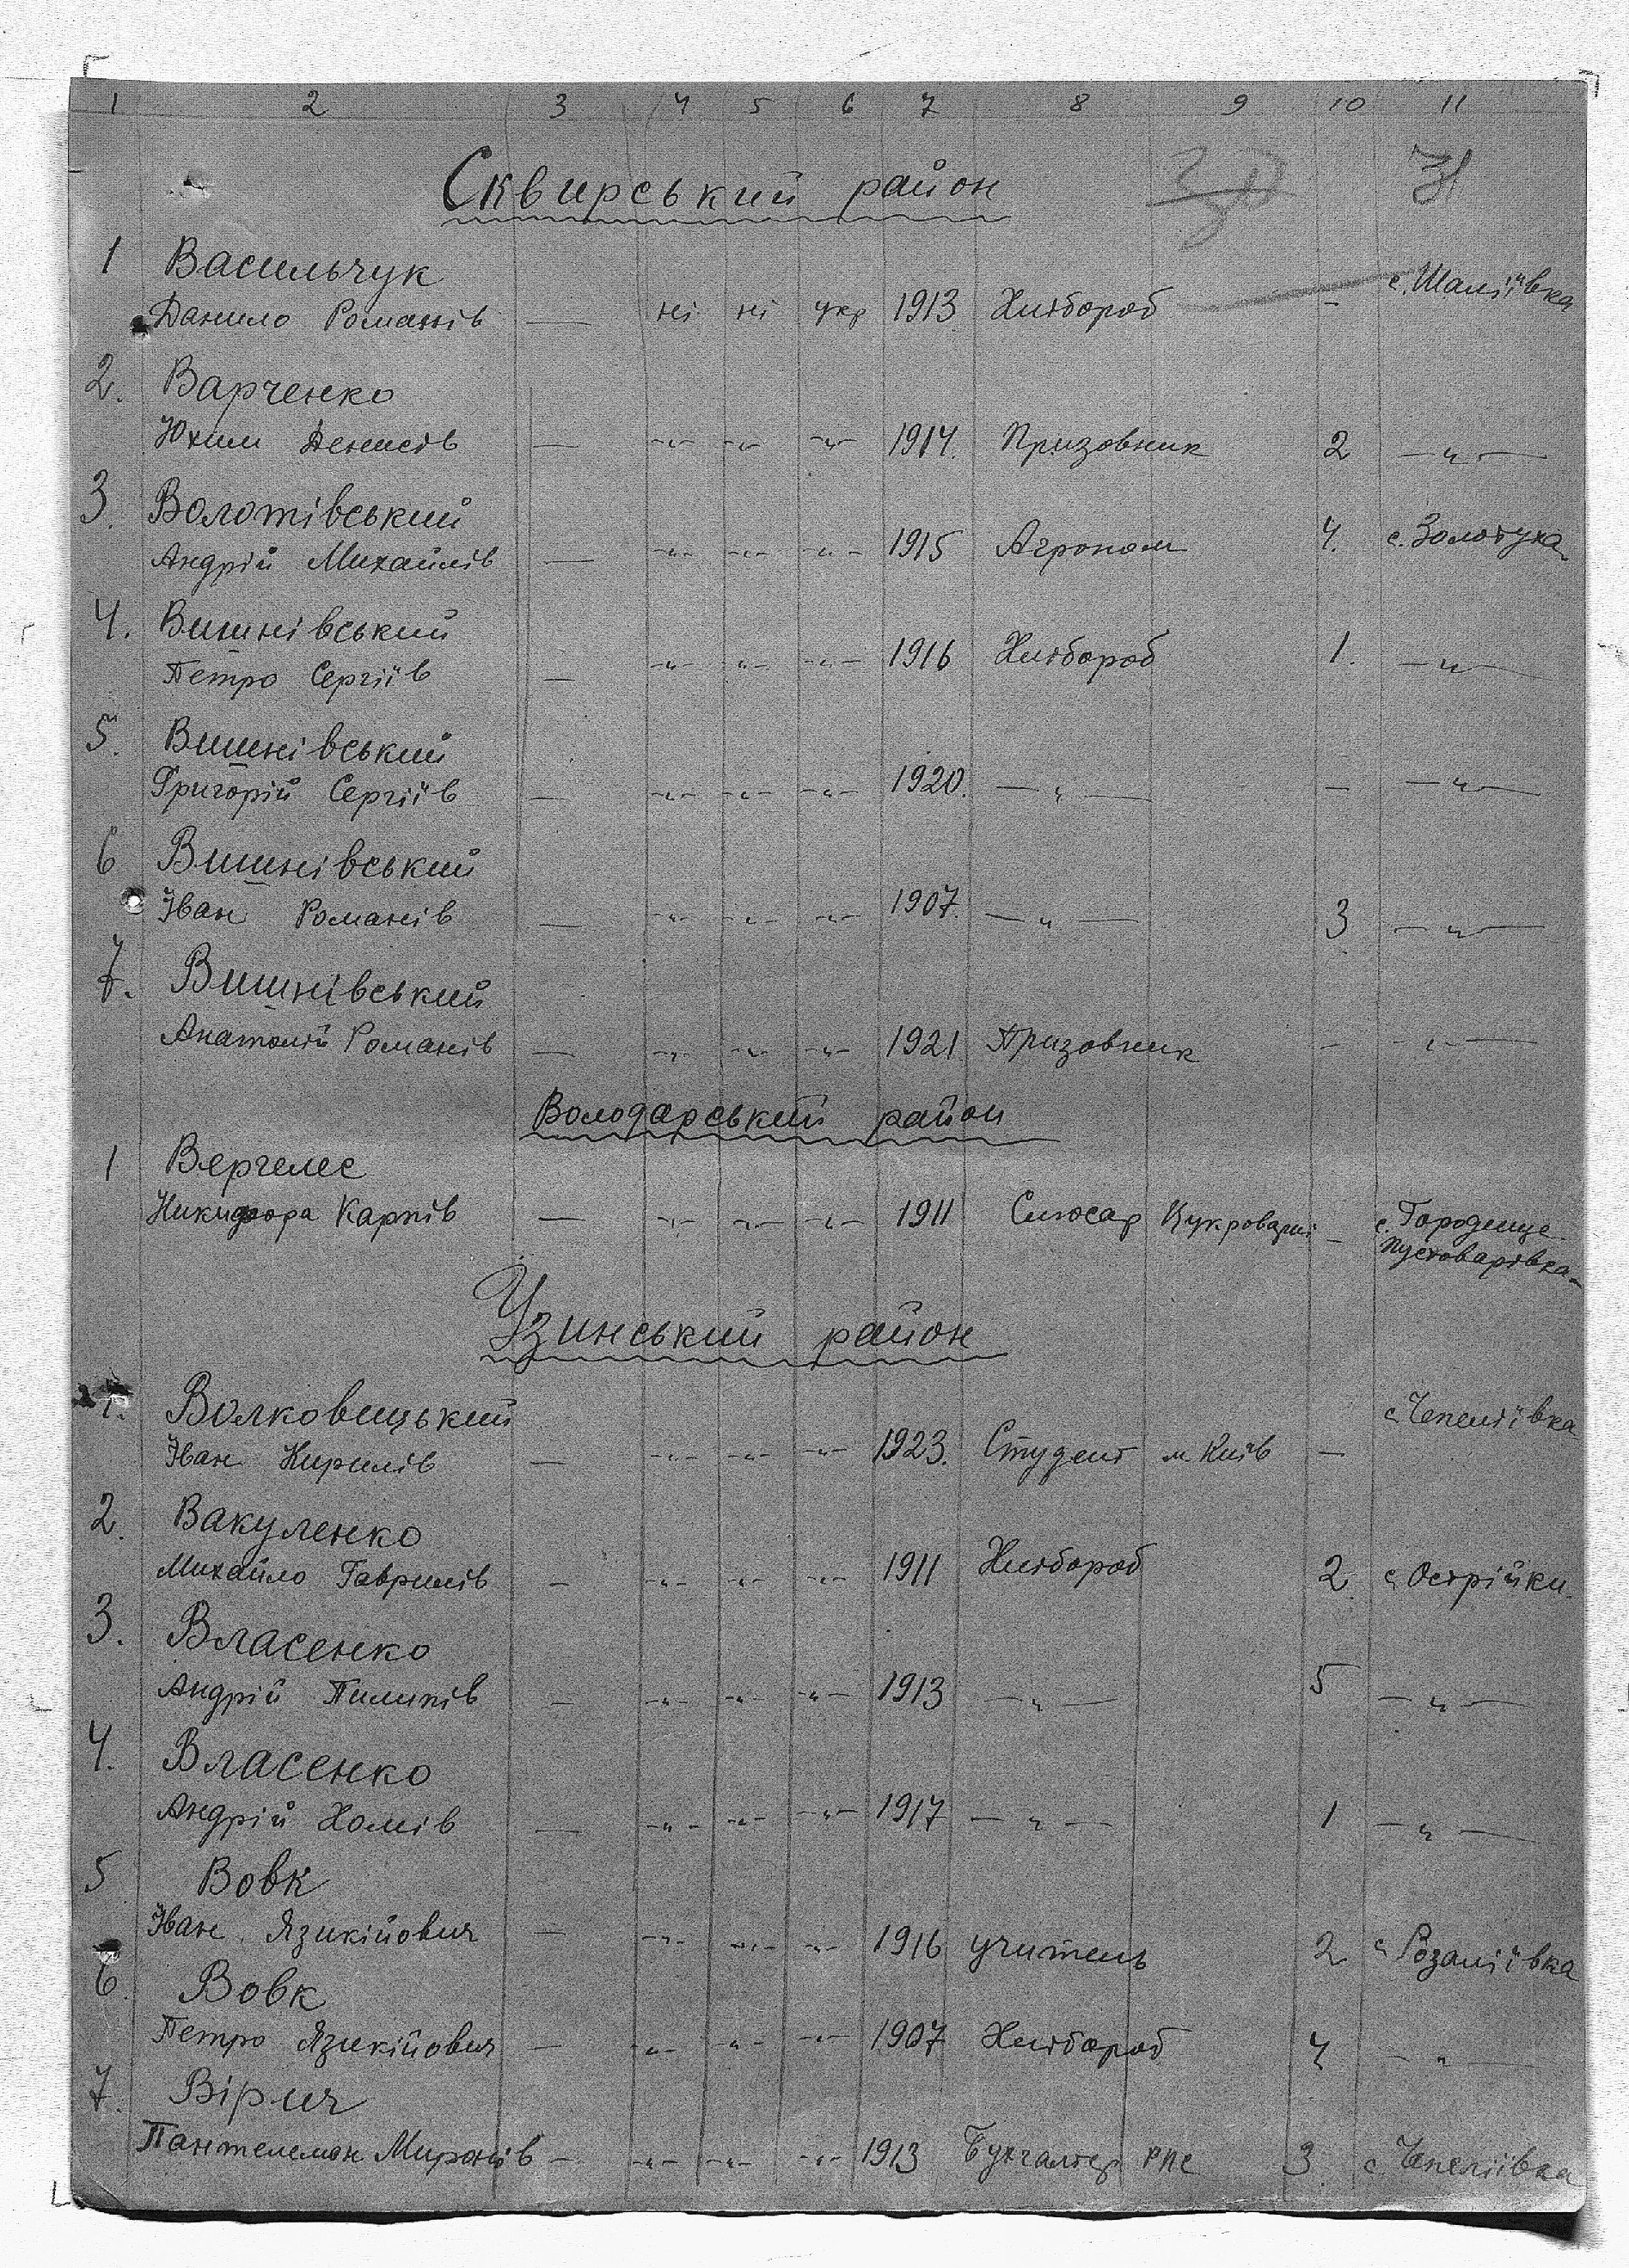 1 2 3 4 5 6 7 8 9 10 11
Сквирський район 30 31
1 Васильчук
Данило Романів — ні ні укр 1913 Хлібороб — с. Шаліївка
2. Варченко
Юхим Денисів — -"- -"- -"- 1914. Призовник 2 —"—
3. Волотівський
Андрій Михайлів — -"- -"- -"- 1915 Агроном 4. с. Золотуха
4. Вишнівський
Петро Сергіїв — -"- -"- -"- 1916 Хлібороб 1. —"—
5. Вишнівський
Григорій Сергіїв — -"- -"- -"- 1920. —"— — —"—
6 Вишнівський
Іван Романів — -"- -"- -"- 1907. —"— 3 —"—
7. Вишнівський
Анатолій Романів — -"- -"- -"- 1921 Призовник — -"—
Володарський район
1 Вергелес
Никифора Карпів — -"- -"- -"- 1911 Слюсар Цукроварні — с. Городище
Пустоварівка
Узинський район
1. Волковицький с. Чепеліївка
Іван Кирилів — -"- -"- -"- 1923. Студент м Київ —
2. Вакуленко
Михайло Гаврилів — -"- -"- -"- 1911 Хлібороб 2 с. Острійки.
3. Власенко
Андрій Пилипів — -"- -"- -"- 1913 —"— 5 —"—
4. Власенко
Андрій Хомів — -"- -"- -"- 1917 —"— 1 —"—
5 Вовк
Іван Язикійович — -"- -"- -"- 1916 учитель 2 с Розаліївка
6. Вовк
Петро Язикійович — -"- -"- -"- 1907 Хлібороб 4 —"—
7. Вірич
Пантелемон Миронів — -"- -"- -"- 1913 Бухгалтер РПС 3 с. Чепеліївка